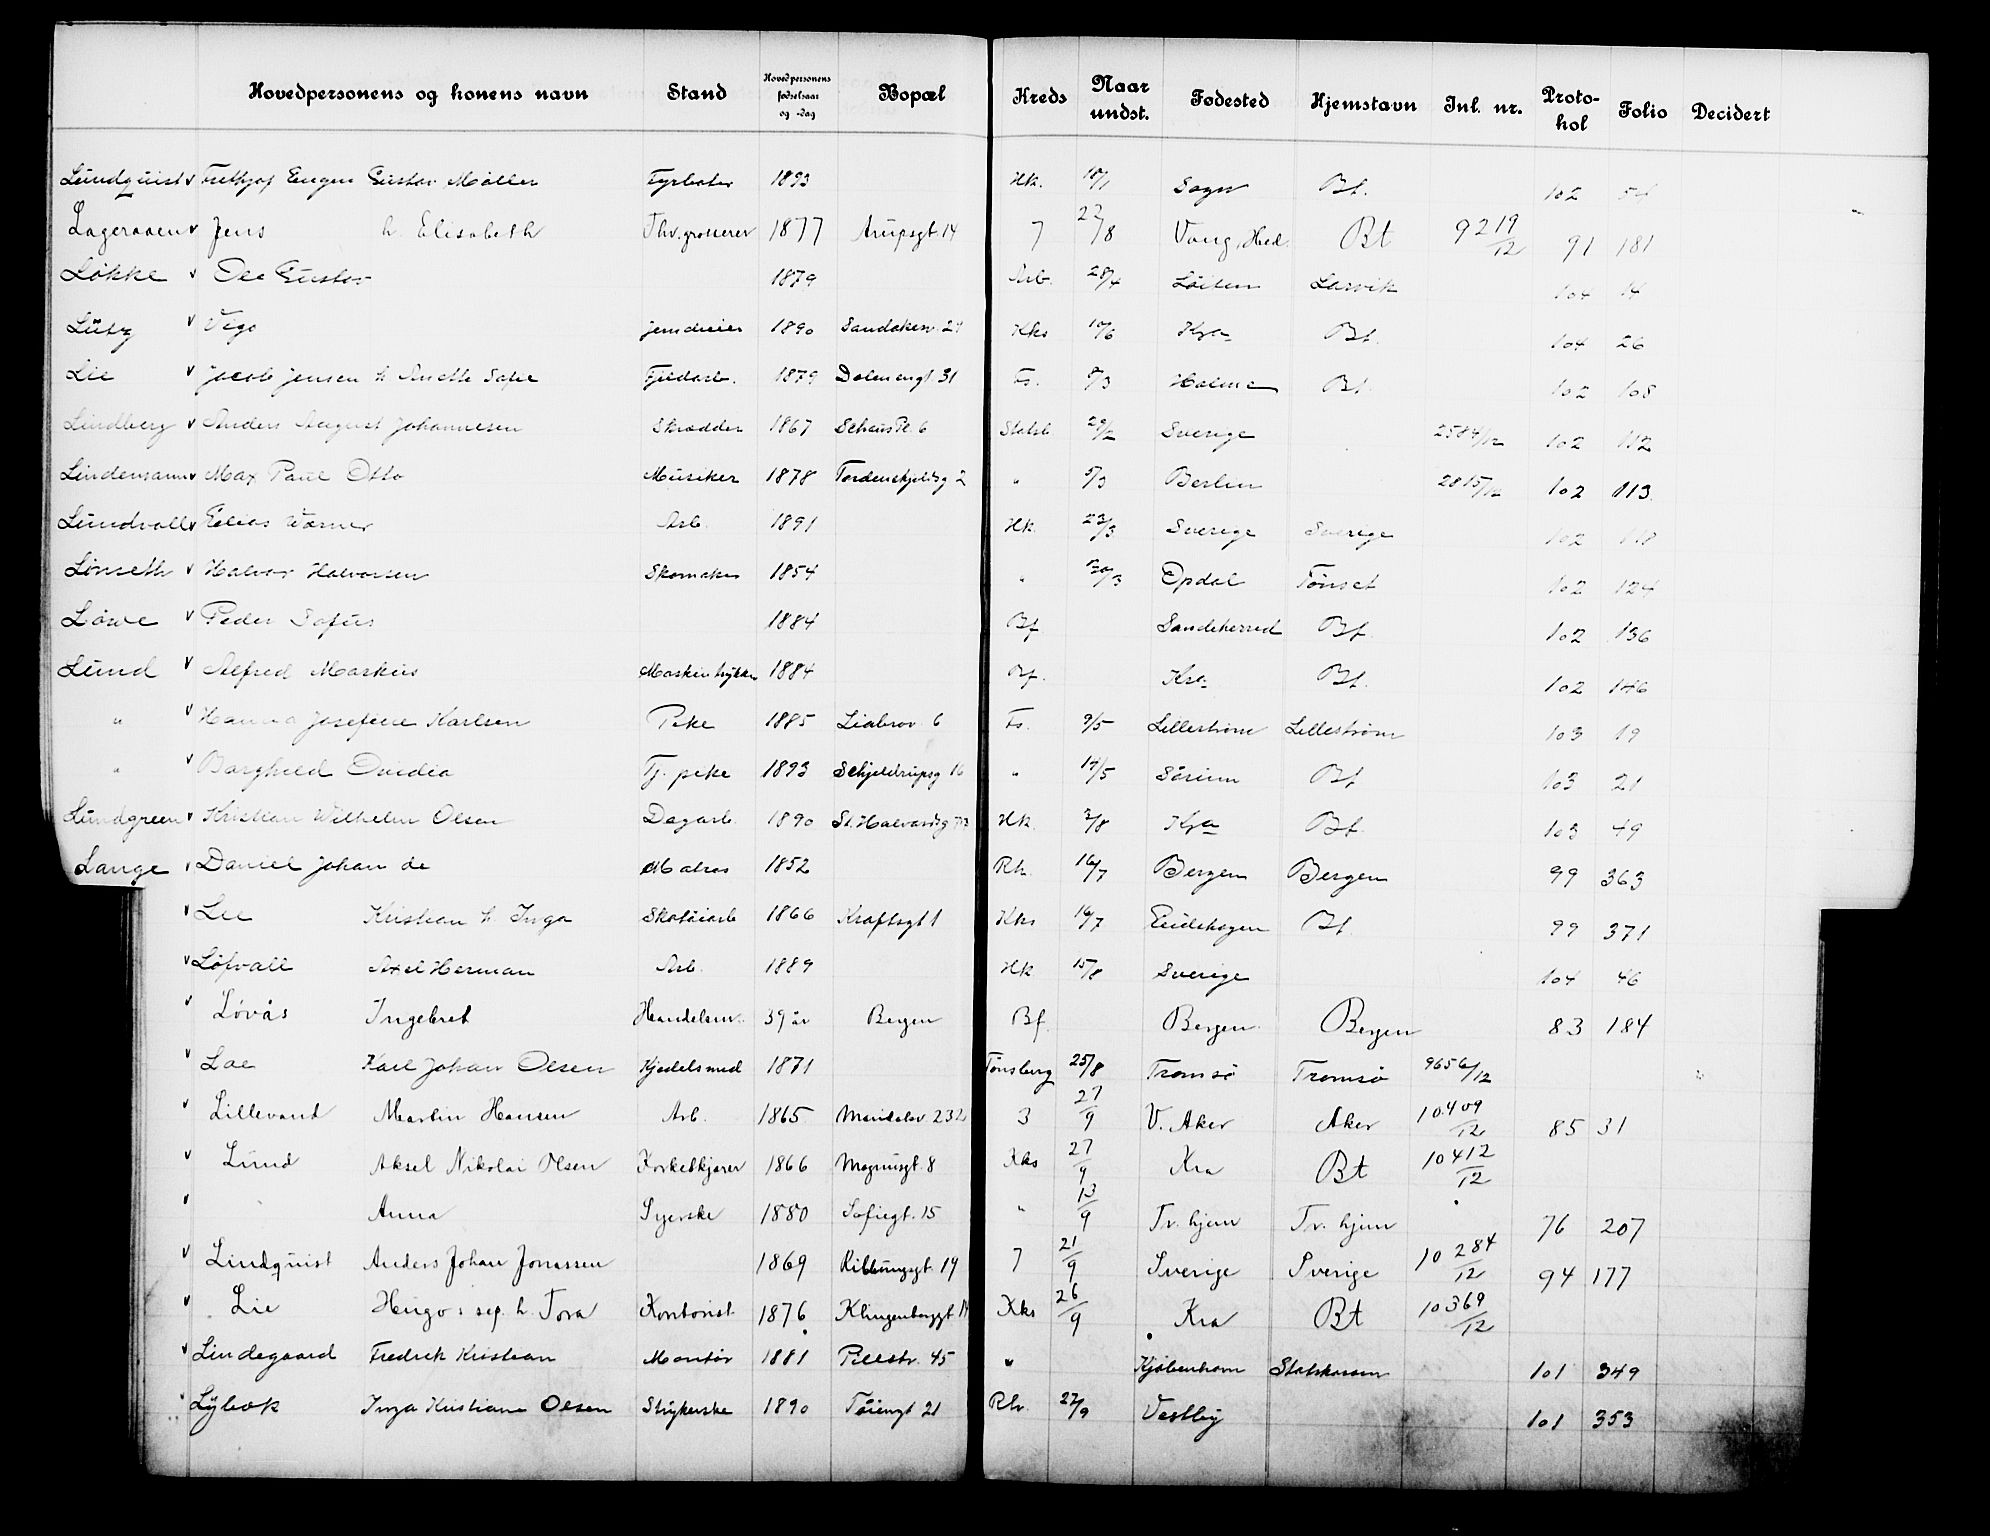 Hovedpersonens og konens navn Stand Hovedpersonens fødselsaar og -dag Bopæl Kreds Naar undst. Fødested Hjemstavn Inl. nr. Protokol Folio Decidert
Lundquist v Eugen Gustav Møller Fyrbøter 1893 Hk. 10/1 Sogn Bf. 102 54
Lageraaen v Jens h. Elisabeth Thv.grosserer 1877 Arupsgt 14 7 22/8 Vang, Hed. Bt 9219/12 91 181
Løkke v Ole Gustav 1879 Arb. 28/4 Løiten Larvik 104 14
Lütz v Vigo jerndreier 1890 Sandakerv. 24 Kks 10/6 Kra Bt. 104 26
Lie v Jacob Jensen h Anette Sofie 1879 Dalenengt 31 Fs. 8/3 Bt. 102 108
Lindberg v Anders August Johannesen Skrædder 1867 Schous Pl. 6 Statsb 29/2 Sverige 2584/12 102 112
Lindemann v Max Paul Otto Musiker 1878 Tordenskjoldsg 2 " 5/3 Berlin 2815/12 102 113
Lundvall v Elias Werner Arb. 1891 Hk. 23/3 Sverige Sverige 102 118
Lønseth v Halvor Halvorsen Skomaker 1854 " 30/3 Opdal Tønset 102 124
Løwe v Peder Sofus 1884 Bf Sandeherred Bf. 102 136
Lund v Alfred Markus Maskintrykker 1884 Bf. Kra Bf. 102 146
" v Hanna Josefine Karlsen Pike 1885 Liabrov 6 Fs. 9/5 Lillestrøm Lillestrøm 103 19
" v Borghild Ovidia Tj. pike 1893 Schjeldrupsg 16 " 14/5 Sørum Bf 103 21
Lundgreen v Kristian Wilhelm Olsen Dagarb. 1890 St. Halvardsg Hk. 3/8 Kra Bf. 103 49
Lange v Daniel Johan de Matros 1852 Rh 16/7 Bergen Bergen 99 363
v Lie Kristian h. Inga Skotøiarb 1866 Kraftsgt 1 Kks 16/7 Eidskogen Bf 99 371
v Løfvall Axel Herman Arb. 1889 Hk 15/8 Sverige 104 46
v Løvås Ingebret Handelsm. 39 år Bergen Bf. Bergen Bergen 83 184
v Loe Karl Johan Olsen Kjedelsmed 1871 Tønsberg 25/8 Tromsø Tromsø 9656/12
v Lillevand Martin Hansen Arb. 1865 Maridalsv 232 3 27/9 V. Aker Aker 10409/12 85 31
v Lund Aksel Nikolai Olsen Korketkjører 1866 Magnusgt. 8 Kks 27/9 Kra Bt 10412/12
v Anna Syerske 1880 Sofiegt. 15 " 13/9 Tv. hjem Tv. hjem 76 207
v Lindquist Anders Johan Jonassen 1869 Ribbungsgt. 19 7 21/9 Sverige Sverige 10284/12 94 177
v Lie Hugo: sep. h. Tora Kontorist 1876 Klingenberggt 14 Kks 26/9 Kra Bt 10369/12
v Lindegaard Fredrik Kristian Montør 1881 Pilestr. 45 " Kjøbenhavn Statskassen 101 349
Lybæk Inga Kristiane Olsen Strykerske 1890 Tøiengt 21 Rh. 27/9 Vestby 101 353